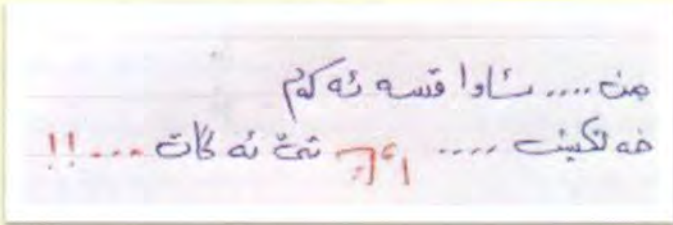 من .... ئاوا قسە ئەکەم
خەڵکیش .... تێ ئەگات ... !!